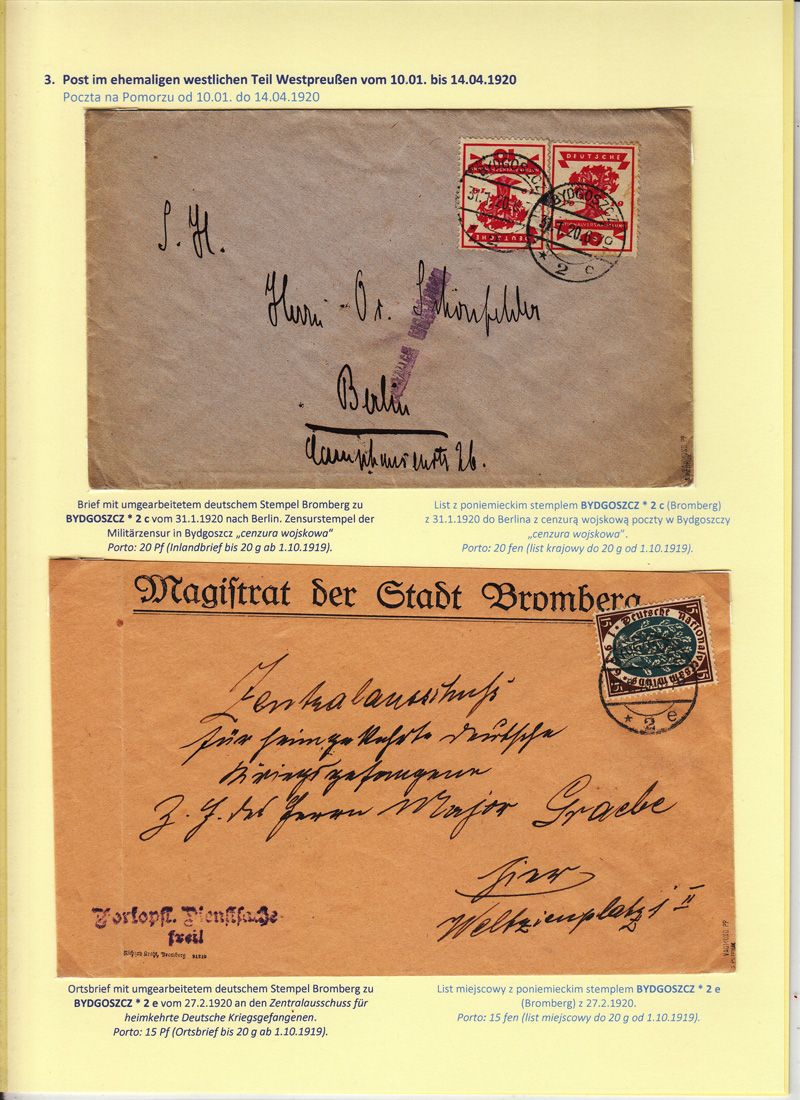 3. Post im ehemaligen westlichen Teil Westpreußen vom 10.01. bis 14.04.1920
Poczta na Pomorzu od 10.01. do 14.04.1920
10
DEUTSCHE
DEUTSCHE
10
BYDGOSZCZ
31.1.20.
BYDGOSZCZ
31.1.20.
* 2 c
S. H.
Herrn Dr. Schönfelder
Berlin
Camphausenstr 26.
Brief mit umgearbeitetem deutschem Stempel Bromberg zu
BYDGOSZCZ * 2 c vom 31.1.1920 nach Berlin. Zensurstempel der
Militärzensur in Bydgoszcz „cenzura wojskowa“
Porto: 20 Pf (Inlandbrief bis 20 g ab 1.10.1919).
List z poniemieckim stemplem BYDGOSZCZ * 2 c (Bromberg)
z 31.1.1920 do Berlina z cenzurą wojskową poczty w Bydgoszczy
„cenzura wojskowa”.
Porto: 20 fen (list krajowy do 20 g od 1.10.1919).
Magistrat der Stadt Bromberg
Deutsche Nationalversammlung
1919
15 15
* 2 e
Zentralausschuß
für heimgekehrte deutsche
Kriegsgefangene
z. H. des Herrn Major Graebe
hier
Weltzienplatz 1 II
Portopfl. Dienstsache
frei!
Ortsbrief mit umgearbeitetem deutschem Stempel Bromberg zu
BYDGOSZCZ * 2 e vom 27.2.1920 an den Zentralausschuss für
heimkehrte Deutsche Kriegsgefangenen.
Porto: 15 Pf (Ortsbrief bis 20 g ab 1.10.1919).
List miejscowy z poniemieckim stemplem BYDGOSZCZ * 2 e
(Bromberg) z 27.2.1920.
Porto: 15 fen (list miejscowy do 20 g od 1.10.1919).